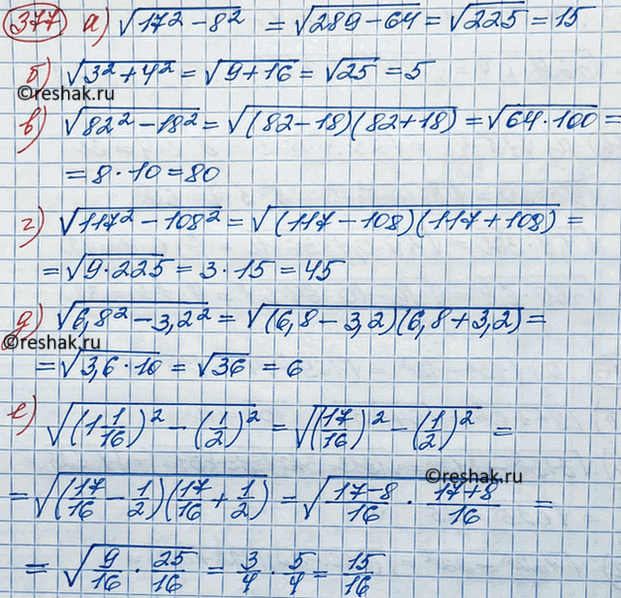 377 а) √(17² − 8²) = √(289−64) = √225 = 15
б) √(3² + 4²) = √(9+16) = √25 = 5
©reshak.ru
в) √(82² − 18²) = √((82−18)(82+18)) = √(64·100) =
= 8 · 10 = 80
г) √(117² − 108²) = √((117−108)(117+108)) =
= √(9·225) = 3 · 15 = 45
д) √(6,8² − 3,2²) = √((6,8−3,2)(6,8+3,2)) =
©reshak.ru
= √(3,6·10) = √36 = 6
е) √((1 1/16)² − (1/2)²) = √((17/16)² − (1/2)²) =
©reshak.ru
= √((17/16 − 1/2)(17/16 + 1/2)) = √((17−8)/16 · (17+8)/16) =
= √(9/16 · 25/16) = 3/4 · 5/4 = 15/16